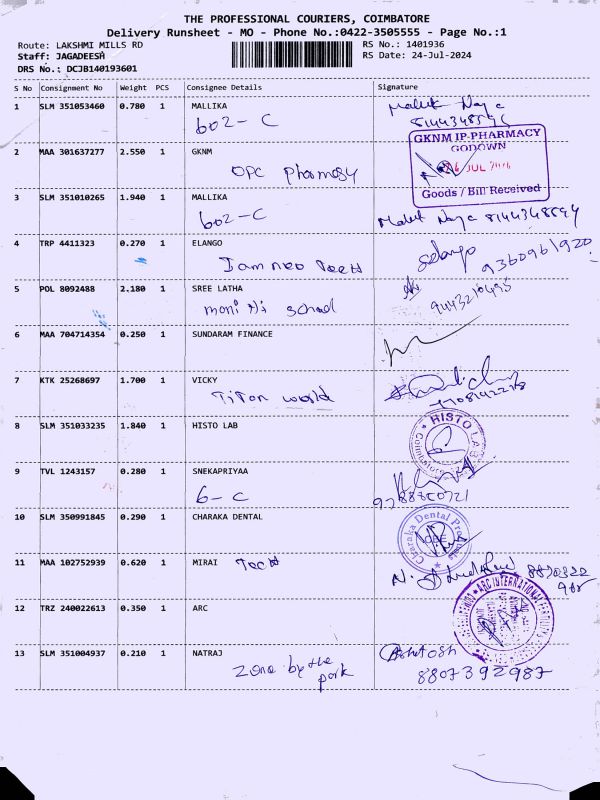 THE PROFESSIONAL COURIERS, COIMBATORE
Delivery Runsheet - MO - Phone No.:0422-3505555 - Page No.:1
Route: LAKSHMI MILLS RD
RS No.: 1401936
Staff: JAGADEESH
RS Date: 24-Jul-2024
DRS No.: DCJB140193601
S No Consignment No Weight PCS Consignee Details Signature
1 SLM 351053460 0.780 1 MALLIKA
602-C
8144348594
2 MAA 301637277 2.550 1 GKNM
OPC pharmacy
GKNM IP-PHARMACY
GODOWN
JUL
Goods / Bill Received
3 SLM 351010265 1.940 1 MALLIKA
602-C
8144348594
4 TRP 4411323 0.270 1 ELANGO
elango
9360961920
5 POL 8092488 2.180 1 SREE LATHA
9443210495
6 MAA 704714354 0.250 1 SUNDARAM FINANCE
7 KTK 25268697 1.700 1 VICKY
Titan world
8 SLM 351033235 1.840 1 HISTO LAB
HISTO LAB
9 TVL 1243157 0.280 1 SNEKAPRIYAA
6-C
10 SLM 350991845 0.290 1 CHARAKA DENTAL
Charaka Dental
11 MAA 102752939 0.620 1 MIRAI Tech
12 TRZ 240022613 0.350 1 ARC
ARC INTERNATIONAL FERTILITY
13 SLM 351004937 0.210 1 NATRAJ
Zone by the
park
Ashitosh
8807392987